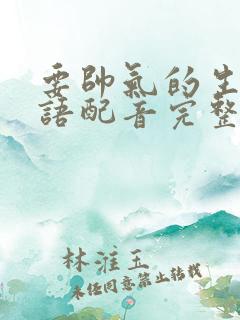 要帥氣的生
語配音完整
林淮玉
未經同意禁止轉載